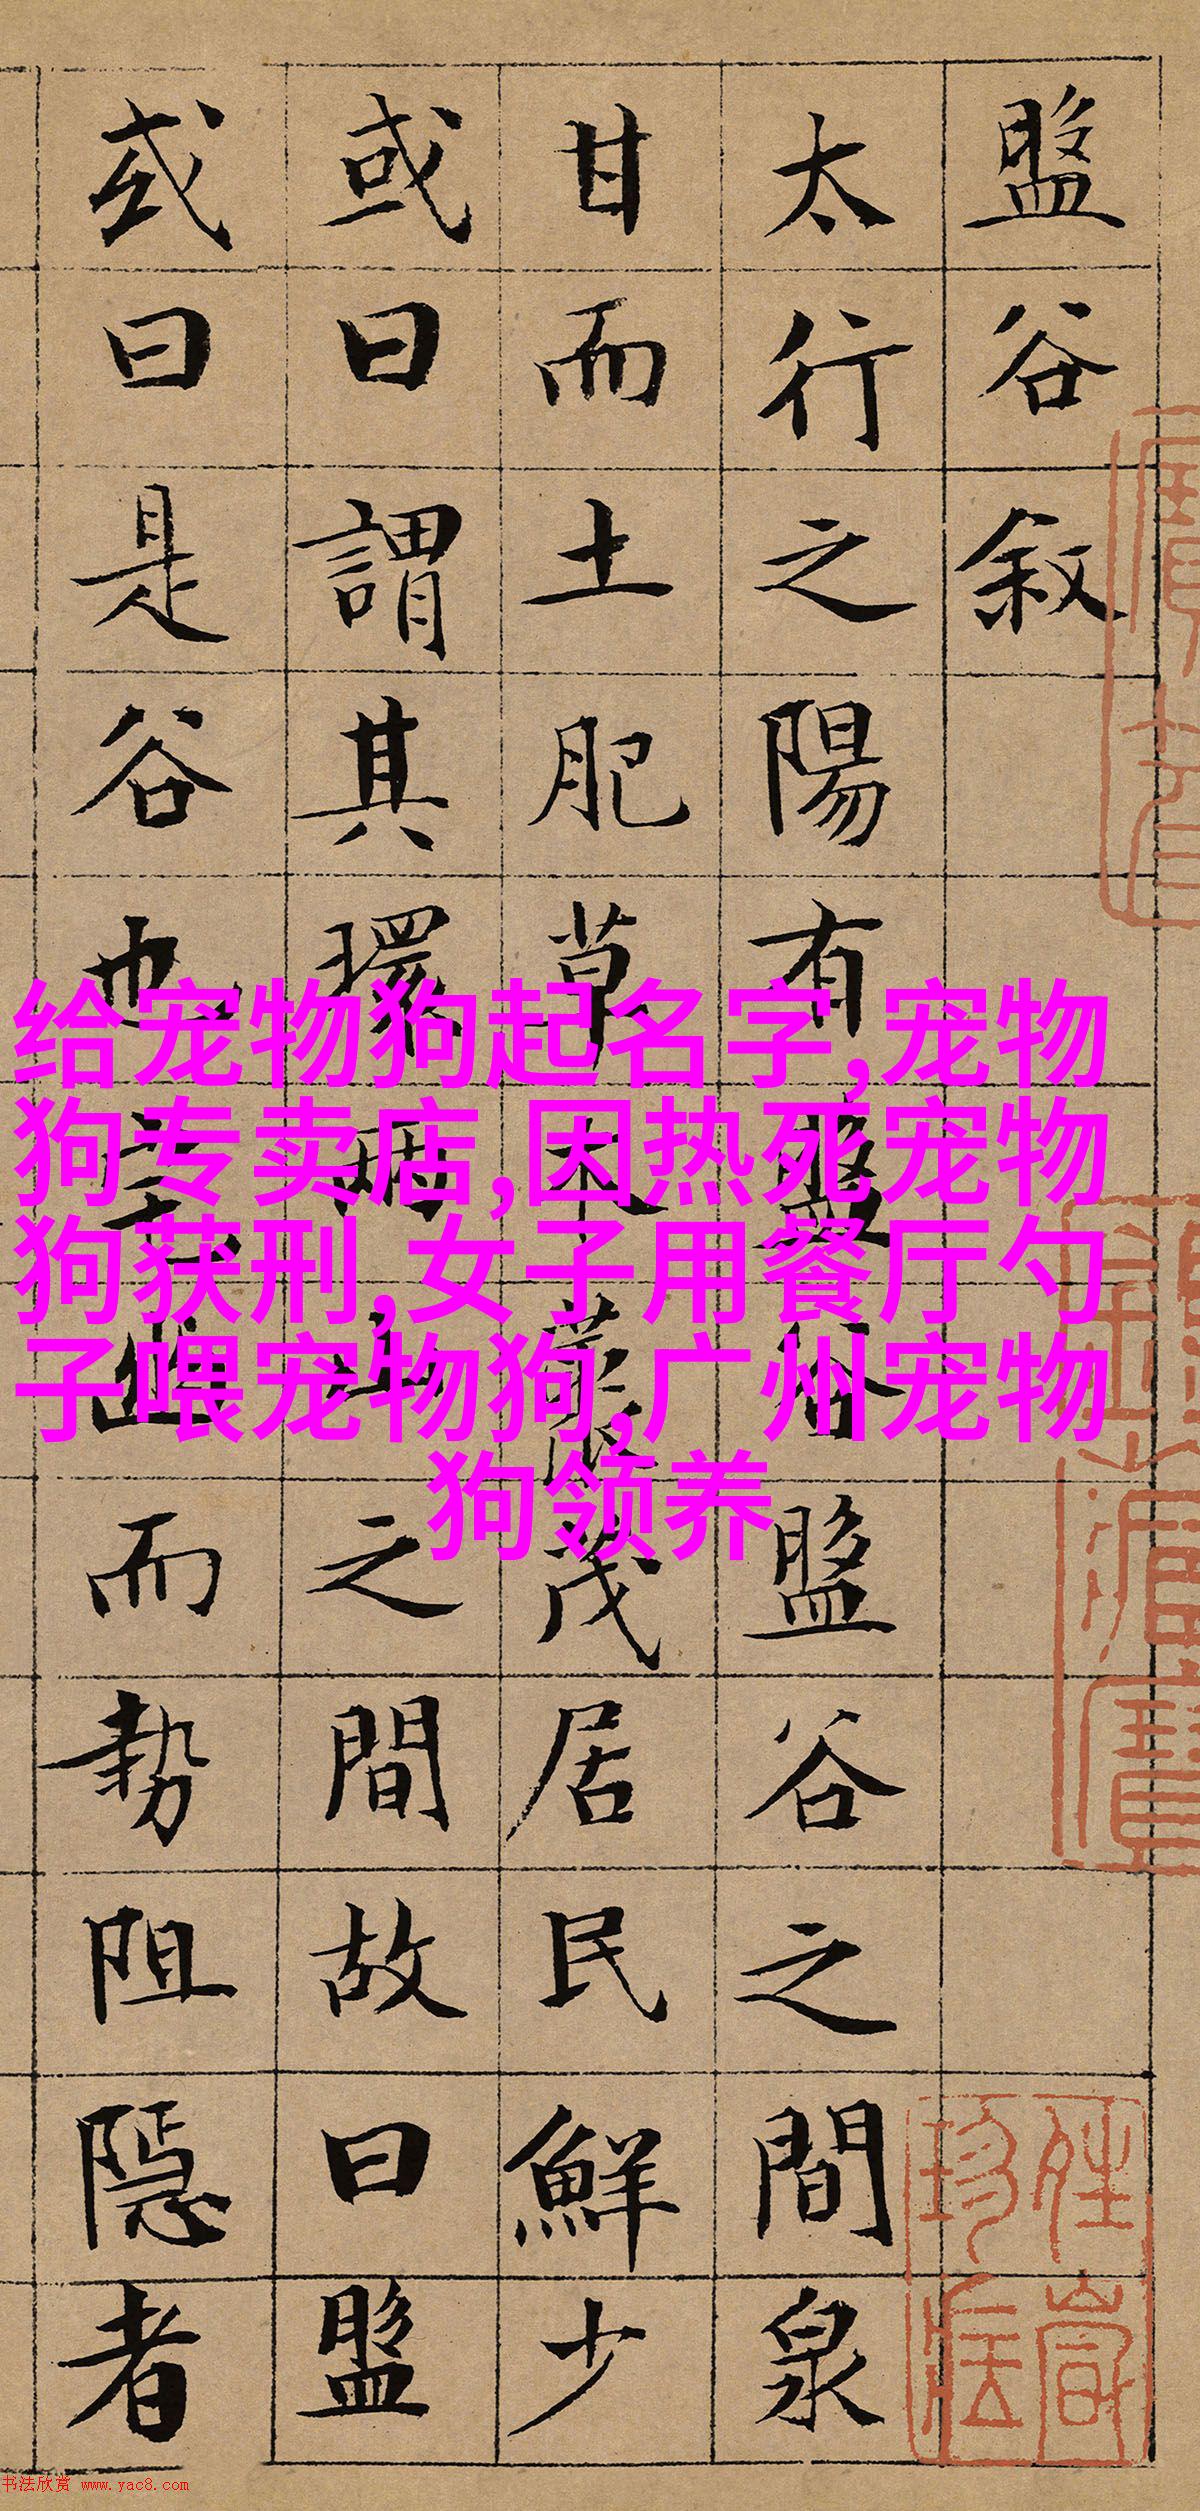 盤谷叙
太行之陽有盤谷盤谷之間泉
甘而土肥草木藂茂居民鮮少
或曰謂其環兩山之間故曰盤
或曰是谷也宅幽而勢阻隱者
给宠物狗起名字,宠物
狗专卖店,因热死宠物
狗获刑,女子用餐厅勺
子喂宠物狗,广州宠物
狗领养
书法欣赏 www.yac8.com